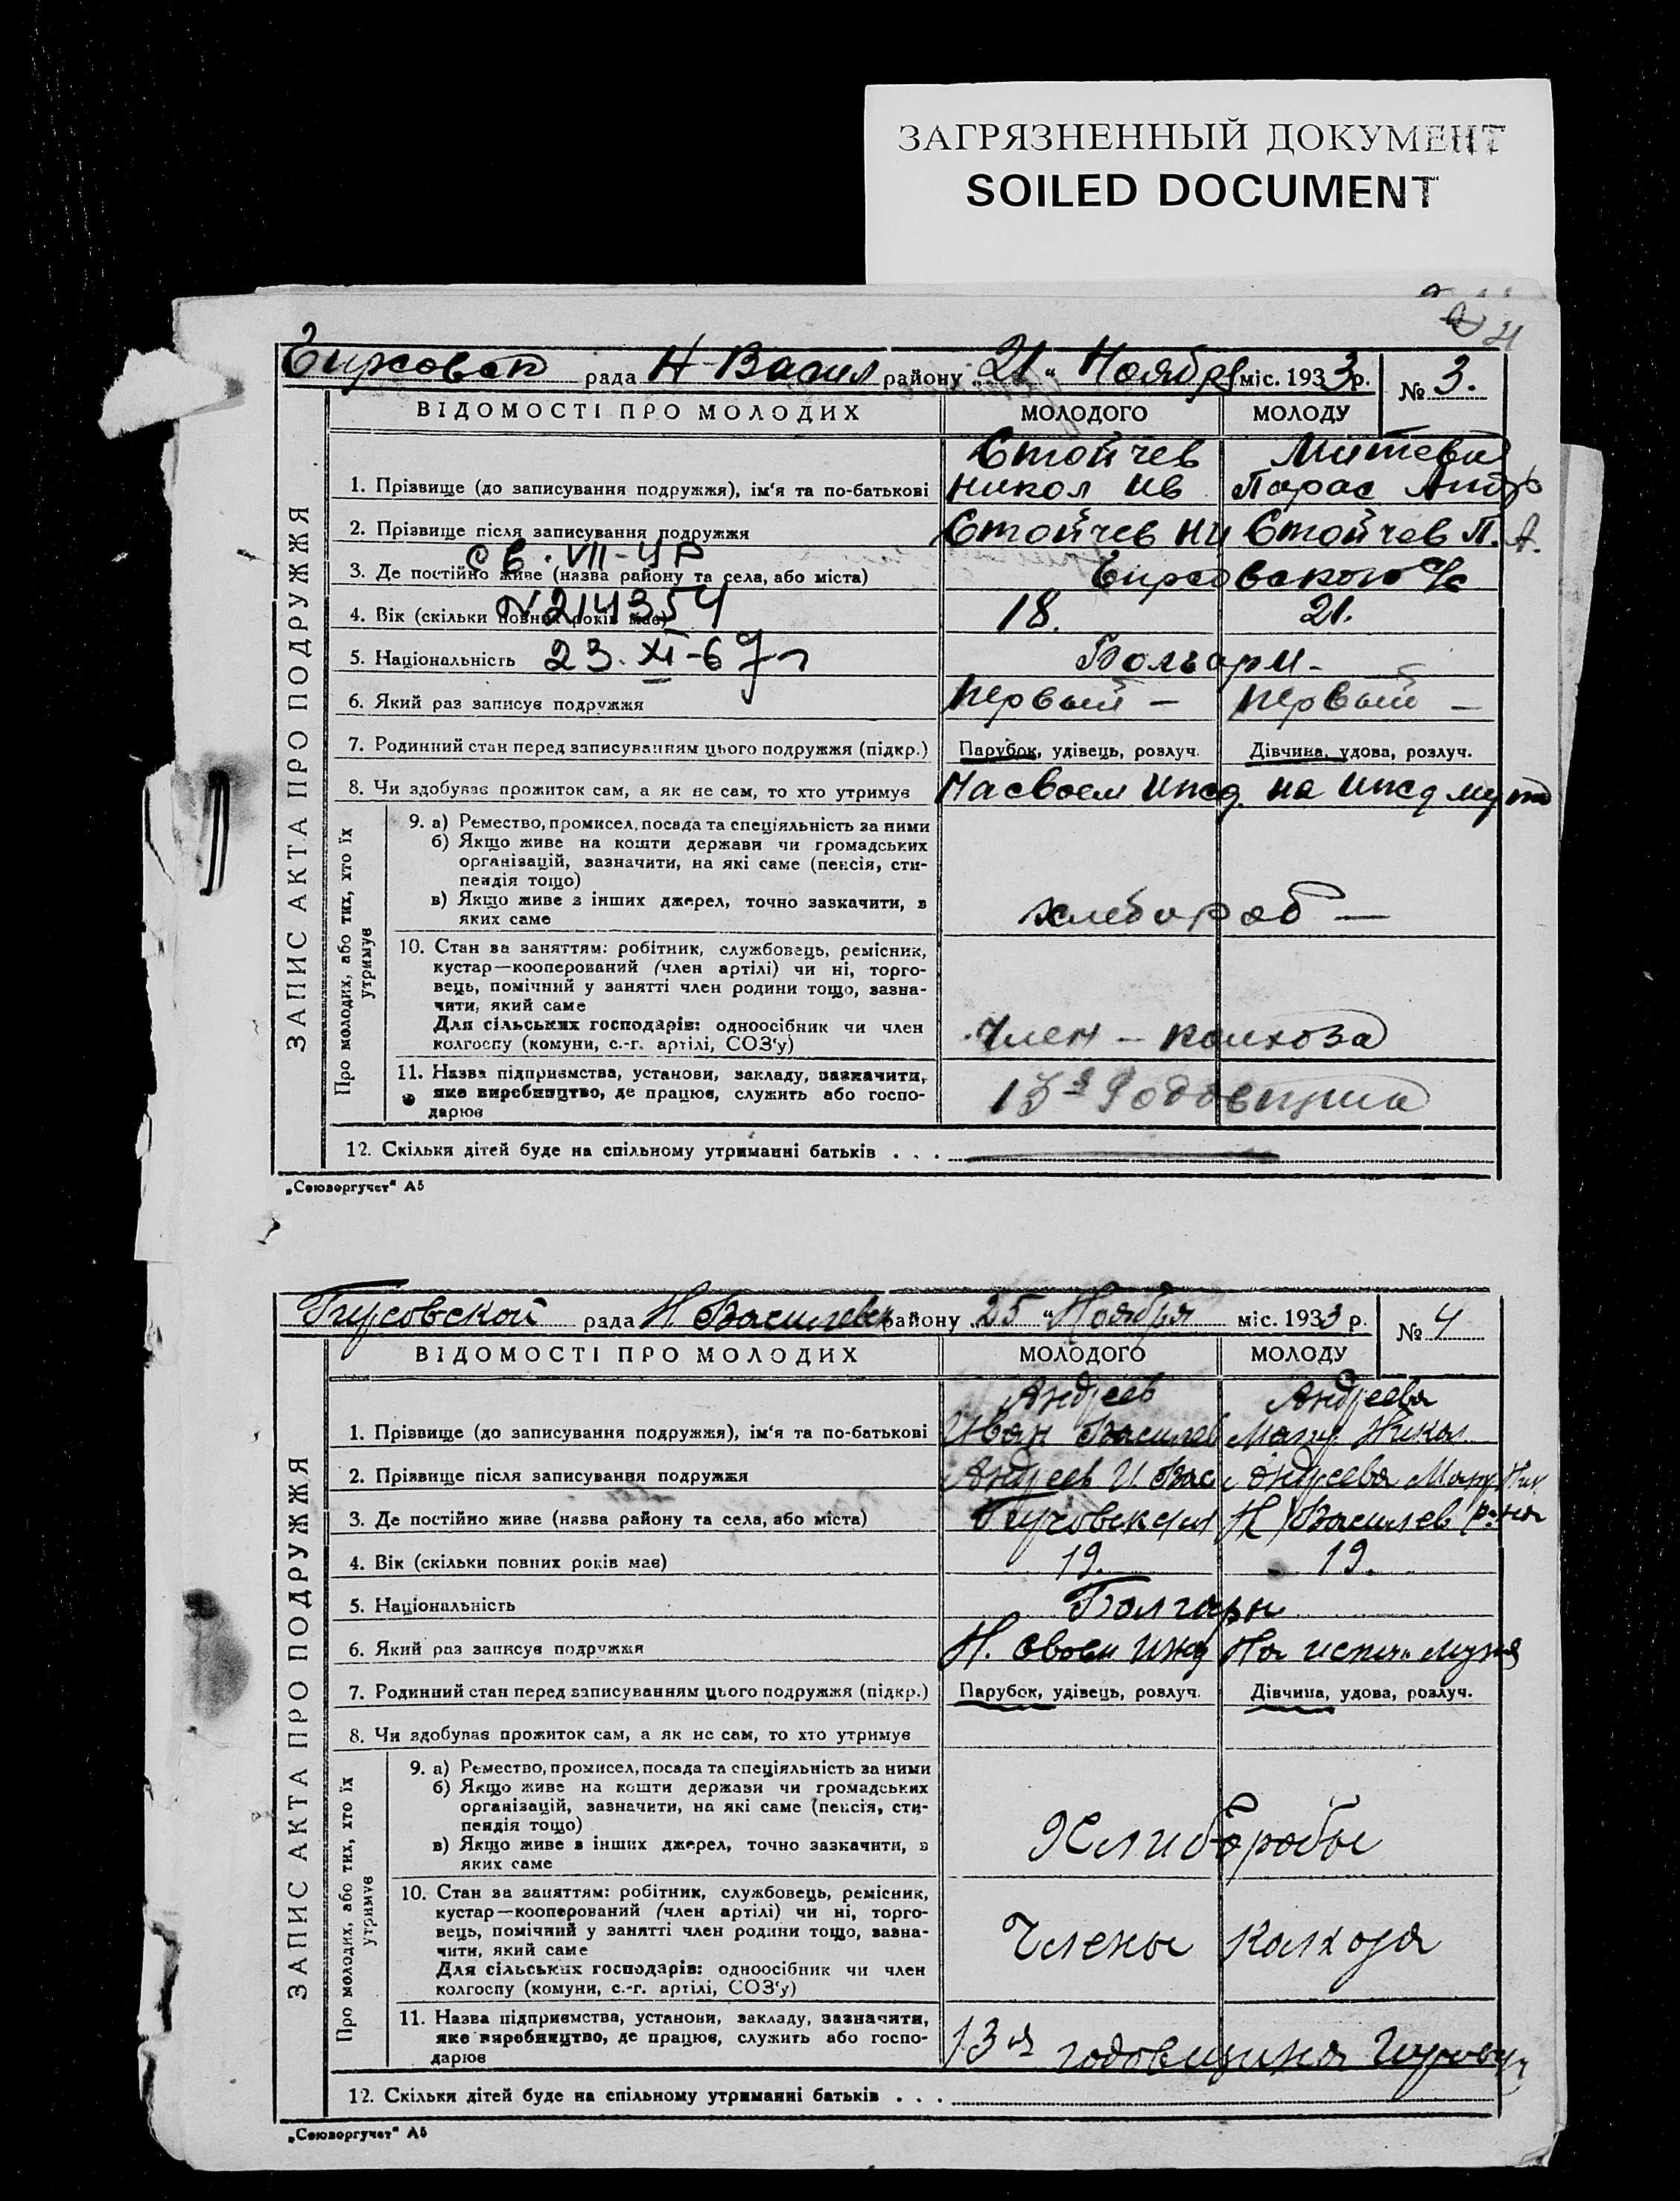 ЗАГРЯЗНЕННЫЙ ДОКУМЕНТ
SOILED DOCUMENT
рада Н-Васил району „21“ Ноября міс. 1933 р. № 3.
ВІДОМОСТІ ПРО МОЛОДИХ МОЛОДОГО МОЛОДУ
ЗАПИС АКТА ПРО ПОДРУЖЖЯ
Стойчев Митева
1. Прізвище (до записування подружжя), ім'я та по-батькові Никол Ив Парас Андр
2. Прізвище після записування подружжя Стойчев Ни Стойчев П. А.
св. VII-УР
3. Де постійно живе (назва району та села, або міста) с/с
4. Вік (скільки повних років має) 18. 21.
N 214354
5. Національність Болгари-
23. XI-67 г
6. Який раз записує подружжя первый - первый -
7. Родинний стан перед записуванням цього подружжя (підкр.) Парубок, удівець, розлуч. Дівчина, удова, розлуч.
8. Чи здобуває прожиток сам, а як не сам, то хто утримує На своем ижд. на ижд мужа
Про молодих, або тих, хто їх утримує
9. а) Ремество, промисел, посада та спеціяльність за ними
б) Якщо живе на кошти держави чи громадських
організацій, зазначити, на які саме (пенсія, сти-
пендія тощо)
в) Якщо живе з інших джерел, точно зазначити, з
яких саме
хлебороб -
10. Стан за заняттям: робітник, службовець, ремісник,
кустар—кооперований (член артілі) чи ні, торго-
вець, помічний у занятті член родини тощо, зазна-
чити, який саме
Для сільських господарів: одноосібник чи член
колгоспу (комуни, с.-г. артілі, СОЗ'у)
Член - колхоза
11. Назва підприємства, установи, закладу, зазначити,
яке виробництво, де працює, служить або госпо-
дарює
13я Годовщина
12. Скільки дітей буде на спільному утриманні батьків . . .
„Союзоргучет“ А5
рада Н Василевск району „25“ Ноября міс. 1933 р. № 4
ВІДОМОСТІ ПРО МОЛОДИХ МОЛОДОГО МОЛОДУ
ЗАПИС АКТА ПРО ПОДРУЖЖЯ
Андреев Андреева
1. Прізвище (до записування подружжя), ім'я та по-батькові Иван Василев Мар. Никол.
2. Прізвище після записування подружжя Андреев И. Вас Андреева Мар Ник
3. Де постійно живе (назва району та села, або міста) Н Василев р-на
4. Вік (скільки повних років має) 19. 19.
5. Національність Болгары
6. Який раз записує подружжя Н. своем ижд На мужа
7. Родинний стан перед записуванням цього подружжя (підкр.) Парубок, удівець, розлуч. Дівчина, удова, розлуч.
8. Чи здобуває прожиток сам, а як не сам, то хто утримує
Про молодих, або тих, хто їх утримує
9. а) Ремество, промисел, посада та спеціяльність за ними
б) Якщо живе на кошти держави чи громадських
організацій, зазначити, на які саме (пенсія, сти-
пендія тощо)
в) Якщо живе з інших джерел, точно зазначити, з
яких саме
Хлиборобы
10. Стан за заняттям: робітник, службовець, ремісник,
кустар—кооперований (член артілі) чи ні, торго-
вець, помічний у занятті член родини тощо, зазна-
чити, який саме
Для сільських господарів: одноосібник чи член
колгоспу (комуни, с.-г. артілі, СОЗ'у)
Члены колхоза
11. Назва підприємства, установи, закладу, зазначити,
яке виробництво, де працює, служить або госпо-
дарює
13я годовщина
12. Скільки дітей буде на спільному утриманні батьків . . .
„Союзоргучет“ А5